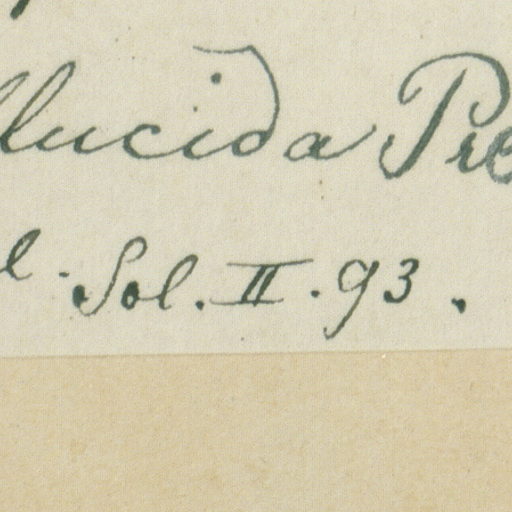 llucida Pre
l. Sol. II. 93.